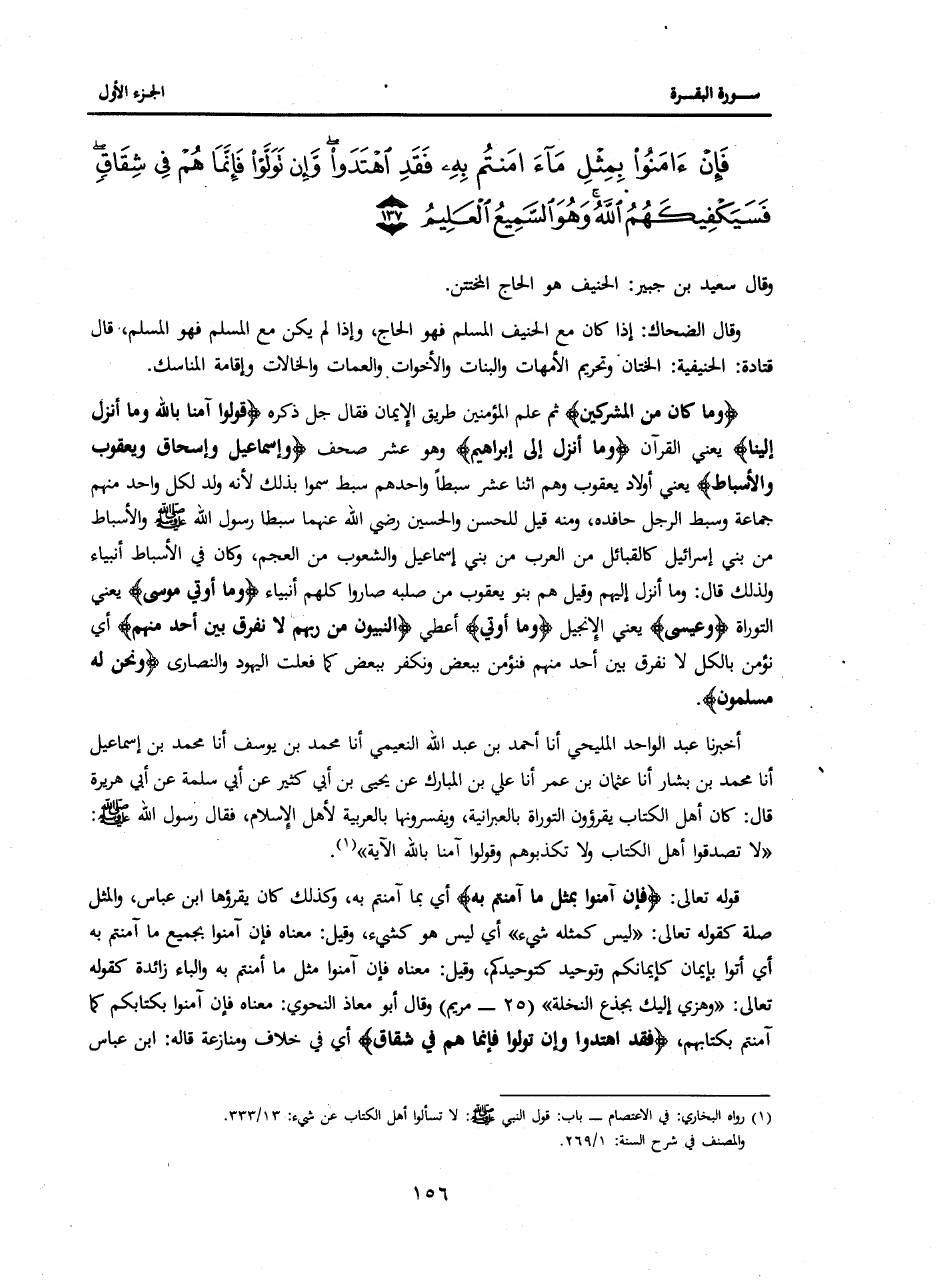 سورة البقرة
الجزء الأول
فَإِنْ ءَامَنُوا۟ بِمِثْلِ مَآ ءَامَنتُم بِهِۦ فَقَدِ ٱهْتَدَوا۟ ۖ وَّإِن تَوَلَّوْا۟ فَإِنَّمَا هُمْ فِى شِقَاقٍ ۖ
فَسَيَكْفِيكَهُمُ ٱللَّهُ ۚ وَهُوَ ٱلسَّمِيعُ ٱلْعَلِيمُ ١٣٧
وقال سعيد بن جبير: الحنيف هو الحاج المختتن.
وقال الضحاك: إذا كان مع الحنيف المسلم فهو الحاج، وإذا لم يكن مع المسلم فهو المسلم، قال
قتادة: الحنيفية: الختان وتحريم الأمهات والبنات والأخوات والعمات والخالات وإقامة المناسك.
﴿وما كان من المشركين﴾ ثم علم المؤمنين طريق الإيمان فقال جل ذكره ﴿قولوا آمنا بالله وما أنزل
إلينا﴾ يعني القرآن ﴿وما أنزل إلى إبراهيم﴾ وهو عشر صحف ﴿وإسماعيل وإسحاق ويعقوب
والأسباط﴾ يعني أولاد يعقوب وهم اثنا عشر سبطاً واحدهم سبط سموا بذلك لأنه ولد لكل واحد منهم
جماعة وسبط الرجل حافده، ومنه قيل للحسن والحسين رضي الله عنهما سبطا رسول الله ﷺ والأسباط
من بني إسرائيل كالقبائل من العرب من بني إسماعيل والشعوب من العجم، وكان في الأسباط أنبياء
ولذلك قال: وما أنزل إليهم وقيل هم بنو يعقوب من صلبه صاروا كلهم أنبياء ﴿وما أوتي موسى﴾ يعني
التوراة ﴿وعيسى﴾ يعني الإنجيل ﴿وما أوتي﴾ أعطي ﴿النبيون من ربهم لا نفرق بين أحد منهم﴾ أي
نؤمن بالكل لا نفرق بين أحد منهم فنؤمن ببعض ونكفر ببعض كما فعلت اليهود والنصارى ﴿ونحن له
مسلمون﴾.
أخبرنا عبد الواحد المليحي أنا أحمد بن عبد الله النعيمي أنا محمد بن يوسف أنا محمد بن إسماعيل
أنا محمد بن بشار أنا عثمان بن عمر أنا علي بن المبارك عن يحيى بن أبي كثير عن أبي سلمة عن أبي هريرة
قال: كان أهل الكتاب يقرؤون التوراة بالعبرانية، ويفسرونها بالعربية لأهل الإسلام، فقال رسول الله ﷺ:
«لا تصدقوا أهل الكتاب ولا تكذبوهم وقولوا آمنا بالله الآية»(١).
قوله تعالى: ﴿فإن آمنوا بمثل ما آمنتم به﴾ أي بما آمنتم به، وكذلك كان يقرؤها ابن عباس، والمثل
صلة كقوله تعالى: «ليس كمثله شيء» أي ليس هو كشيء، وقيل: معناه فإن آمنوا بجميع ما آمنتم به
أي أتوا بإيمان كإيمانكم وتوحيد كتوحيدكم، وقيل: معناه فإن آمنوا مثل ما أمنتم به والباء زائدة كقوله
تعالى: «وهزي إليك بجذع النخلة» (٢٥ ـ مريم) وقال أبو معاذ النحوي: معناه فإن آمنوا بكتابكم كما
آمنتم بكتابهم، ﴿فقد اهتدوا وإن تولوا فإنما هم في شقاق﴾ أي في خلاف ومنازعة قاله: ابن عباس
(١) رواه البخاري: في الاعتصام ـ باب: قول النبي ﷺ: لا تسألوا أهل الكتاب عن شيء: ٣٣٣/١٣.
والمصنف في شرح السنة: ٢٦٩/١.
١٥٦